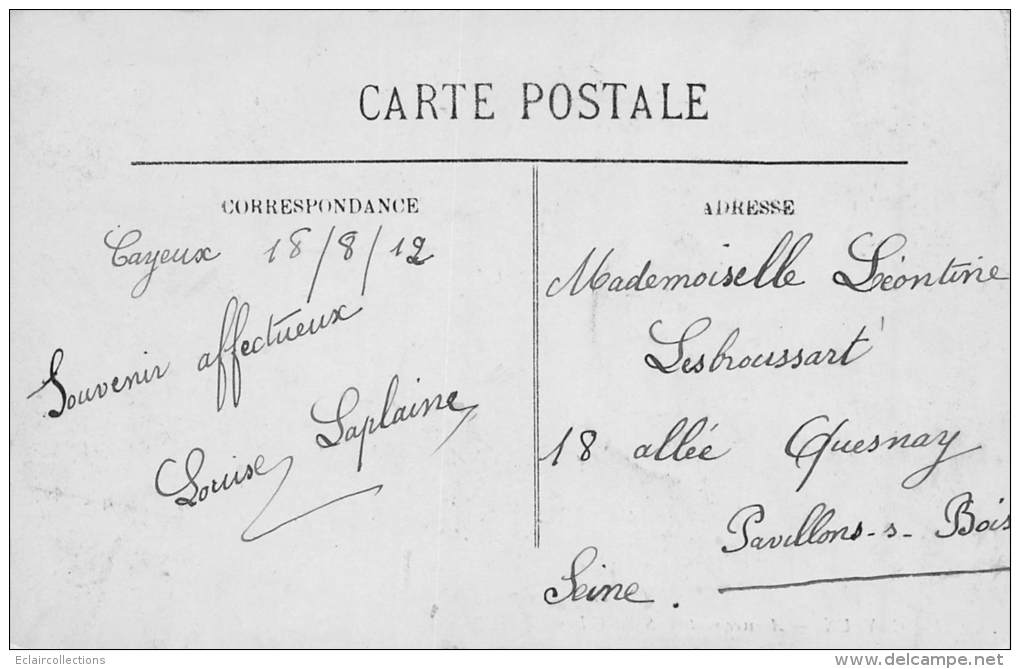 CARTE POSTALE
CORRESPONDANCE
Cayeux 18/8/12
Souvenir affectueux
Louise Laplaine
ADRESSE
Mademoiselle Léontine
Lesbroussart
18 allée Quesnay
Pavillons-s-Bois
Seine.
Eclaircollections
www.delcampe.net